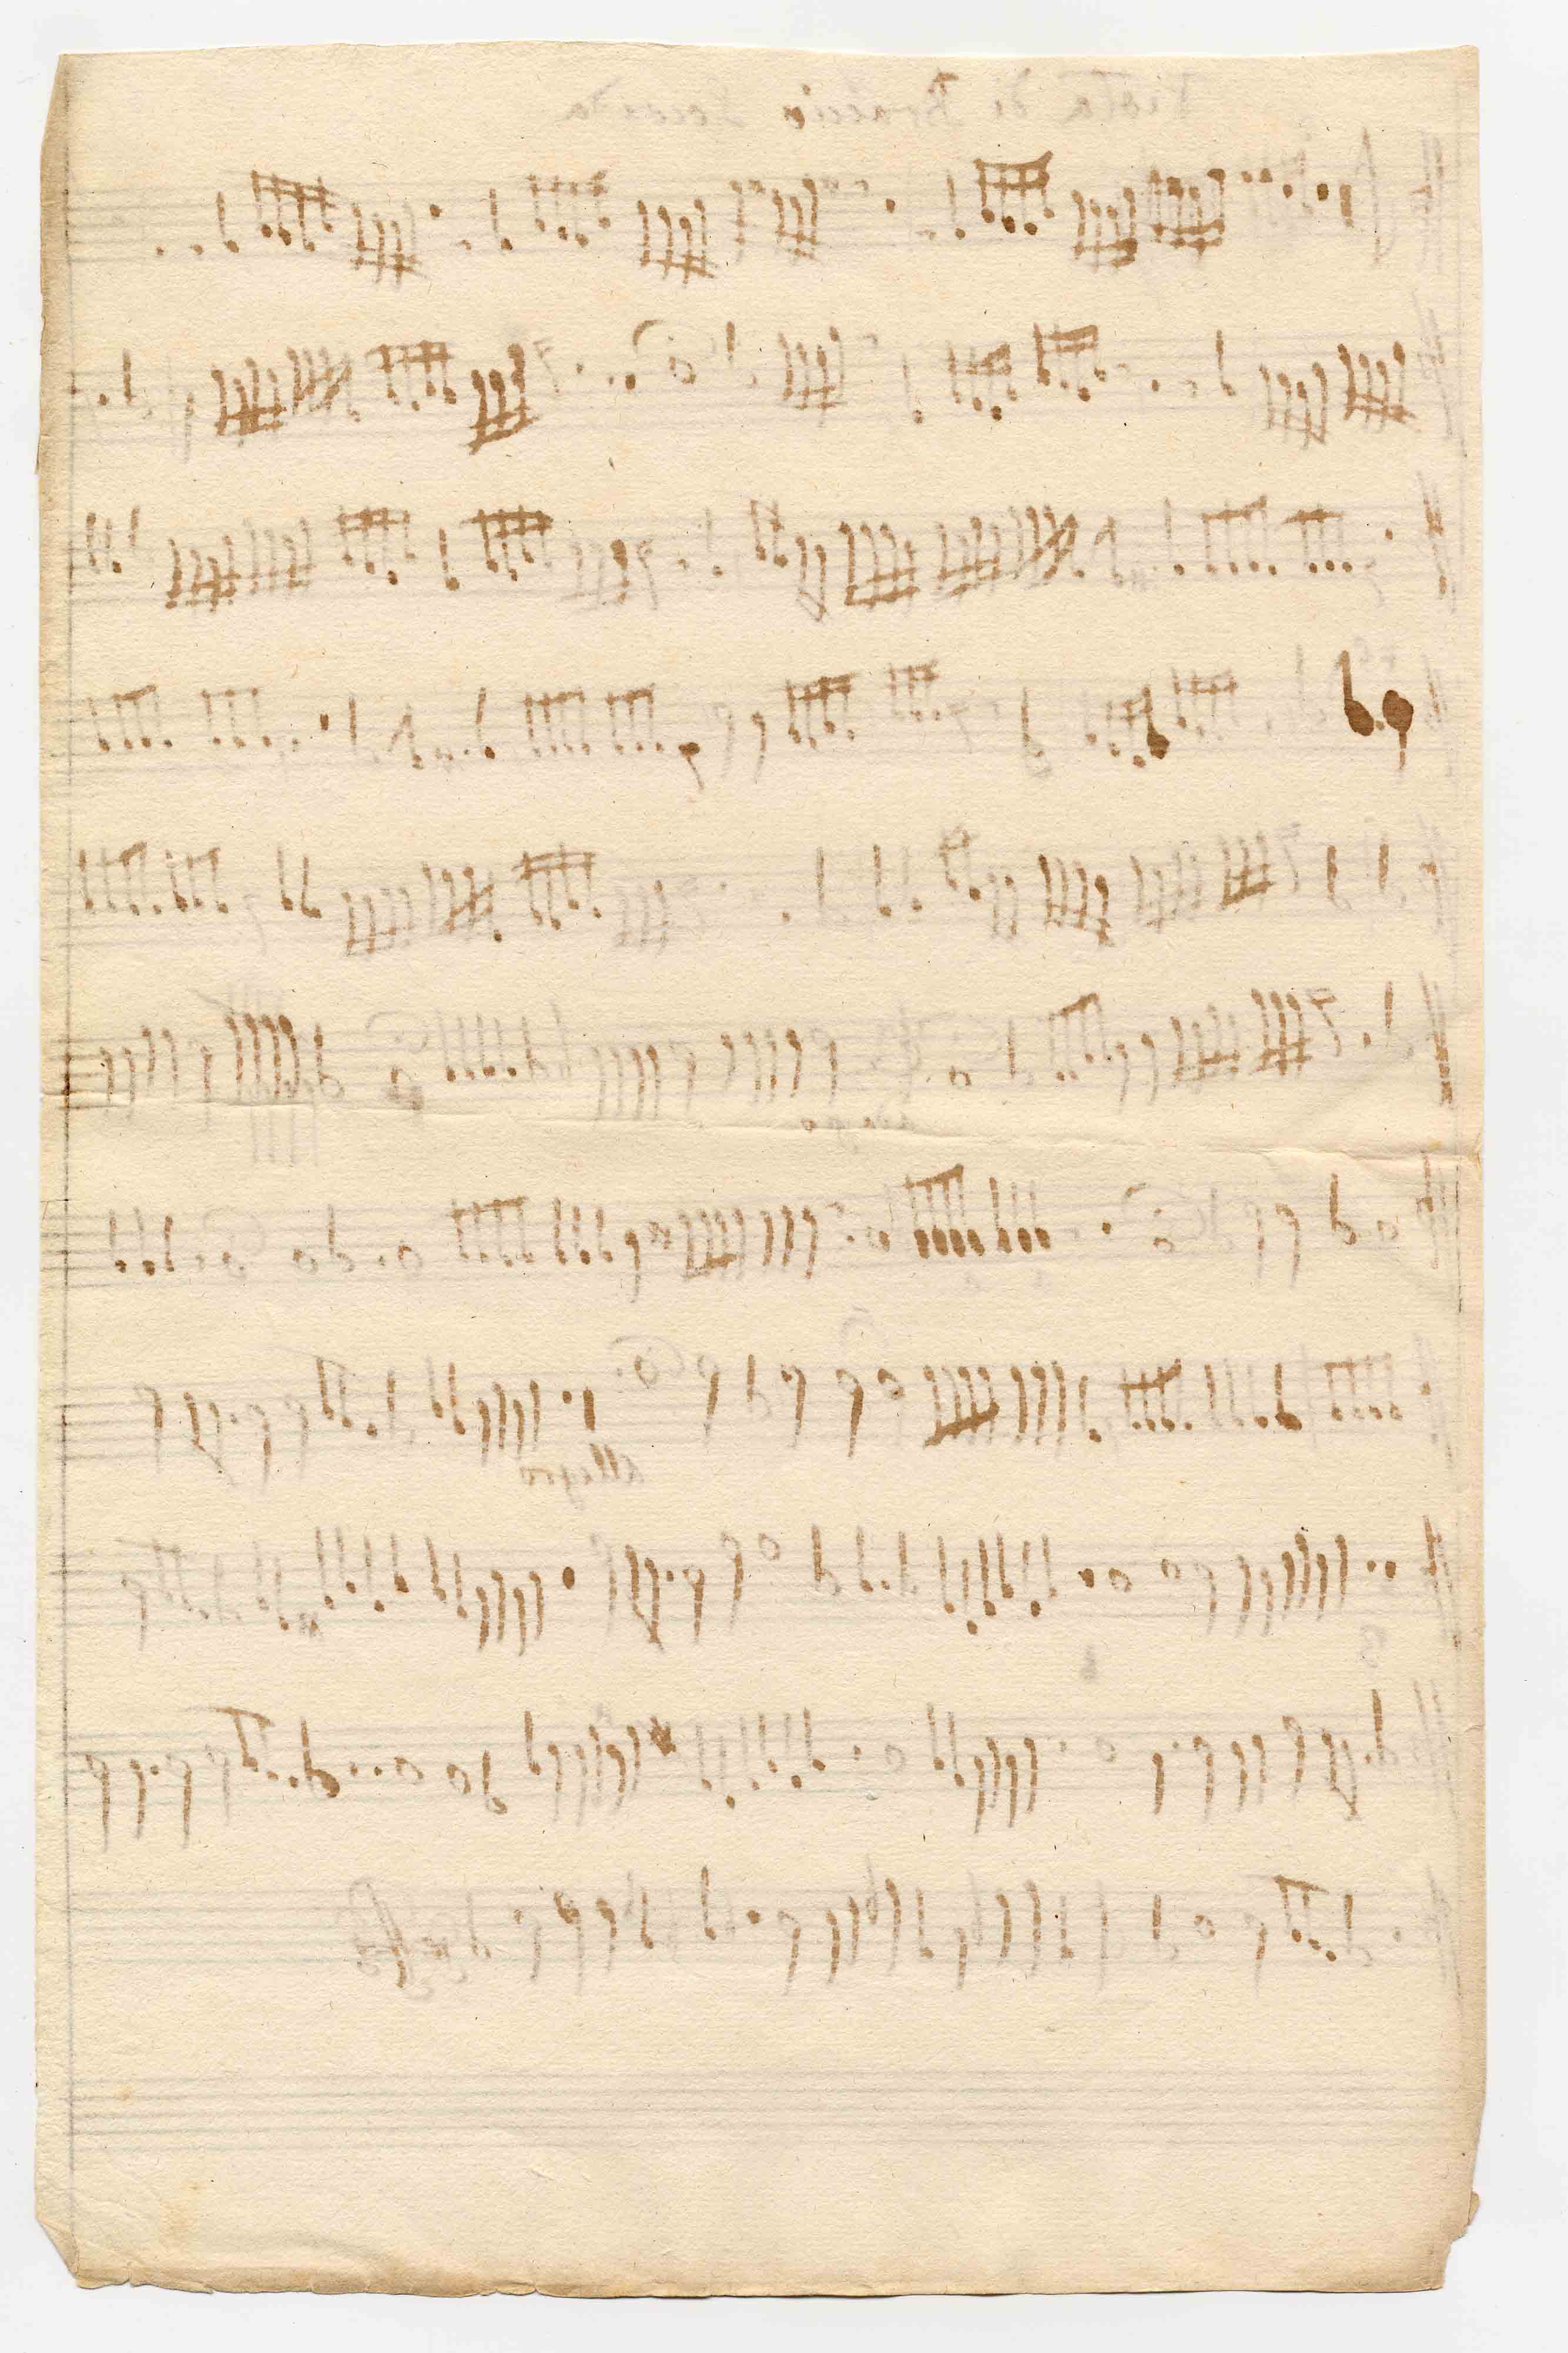 Viola di Braccio Seconda
adagio
allegro